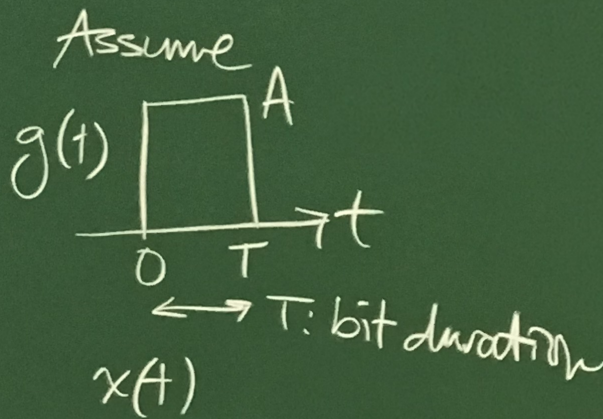 Assume
A
g(t)
t
0 T
T: bit duration
x(t)